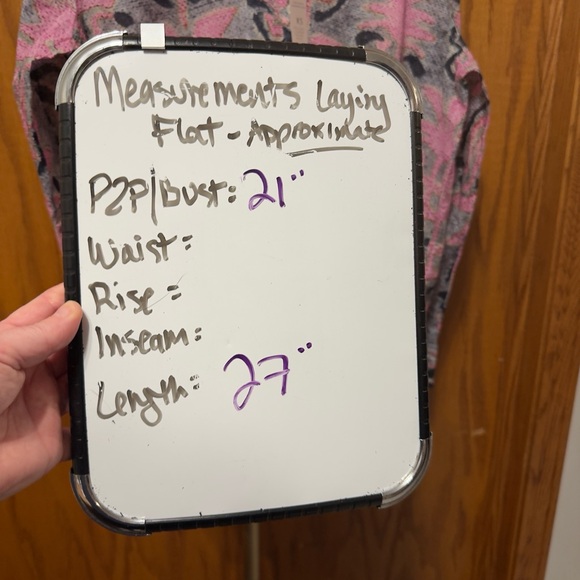 Measurements Laying
Flat - Approximate
P2P/Bust: 21"
Waist:
Rise:
Inseam:
Length: 27"